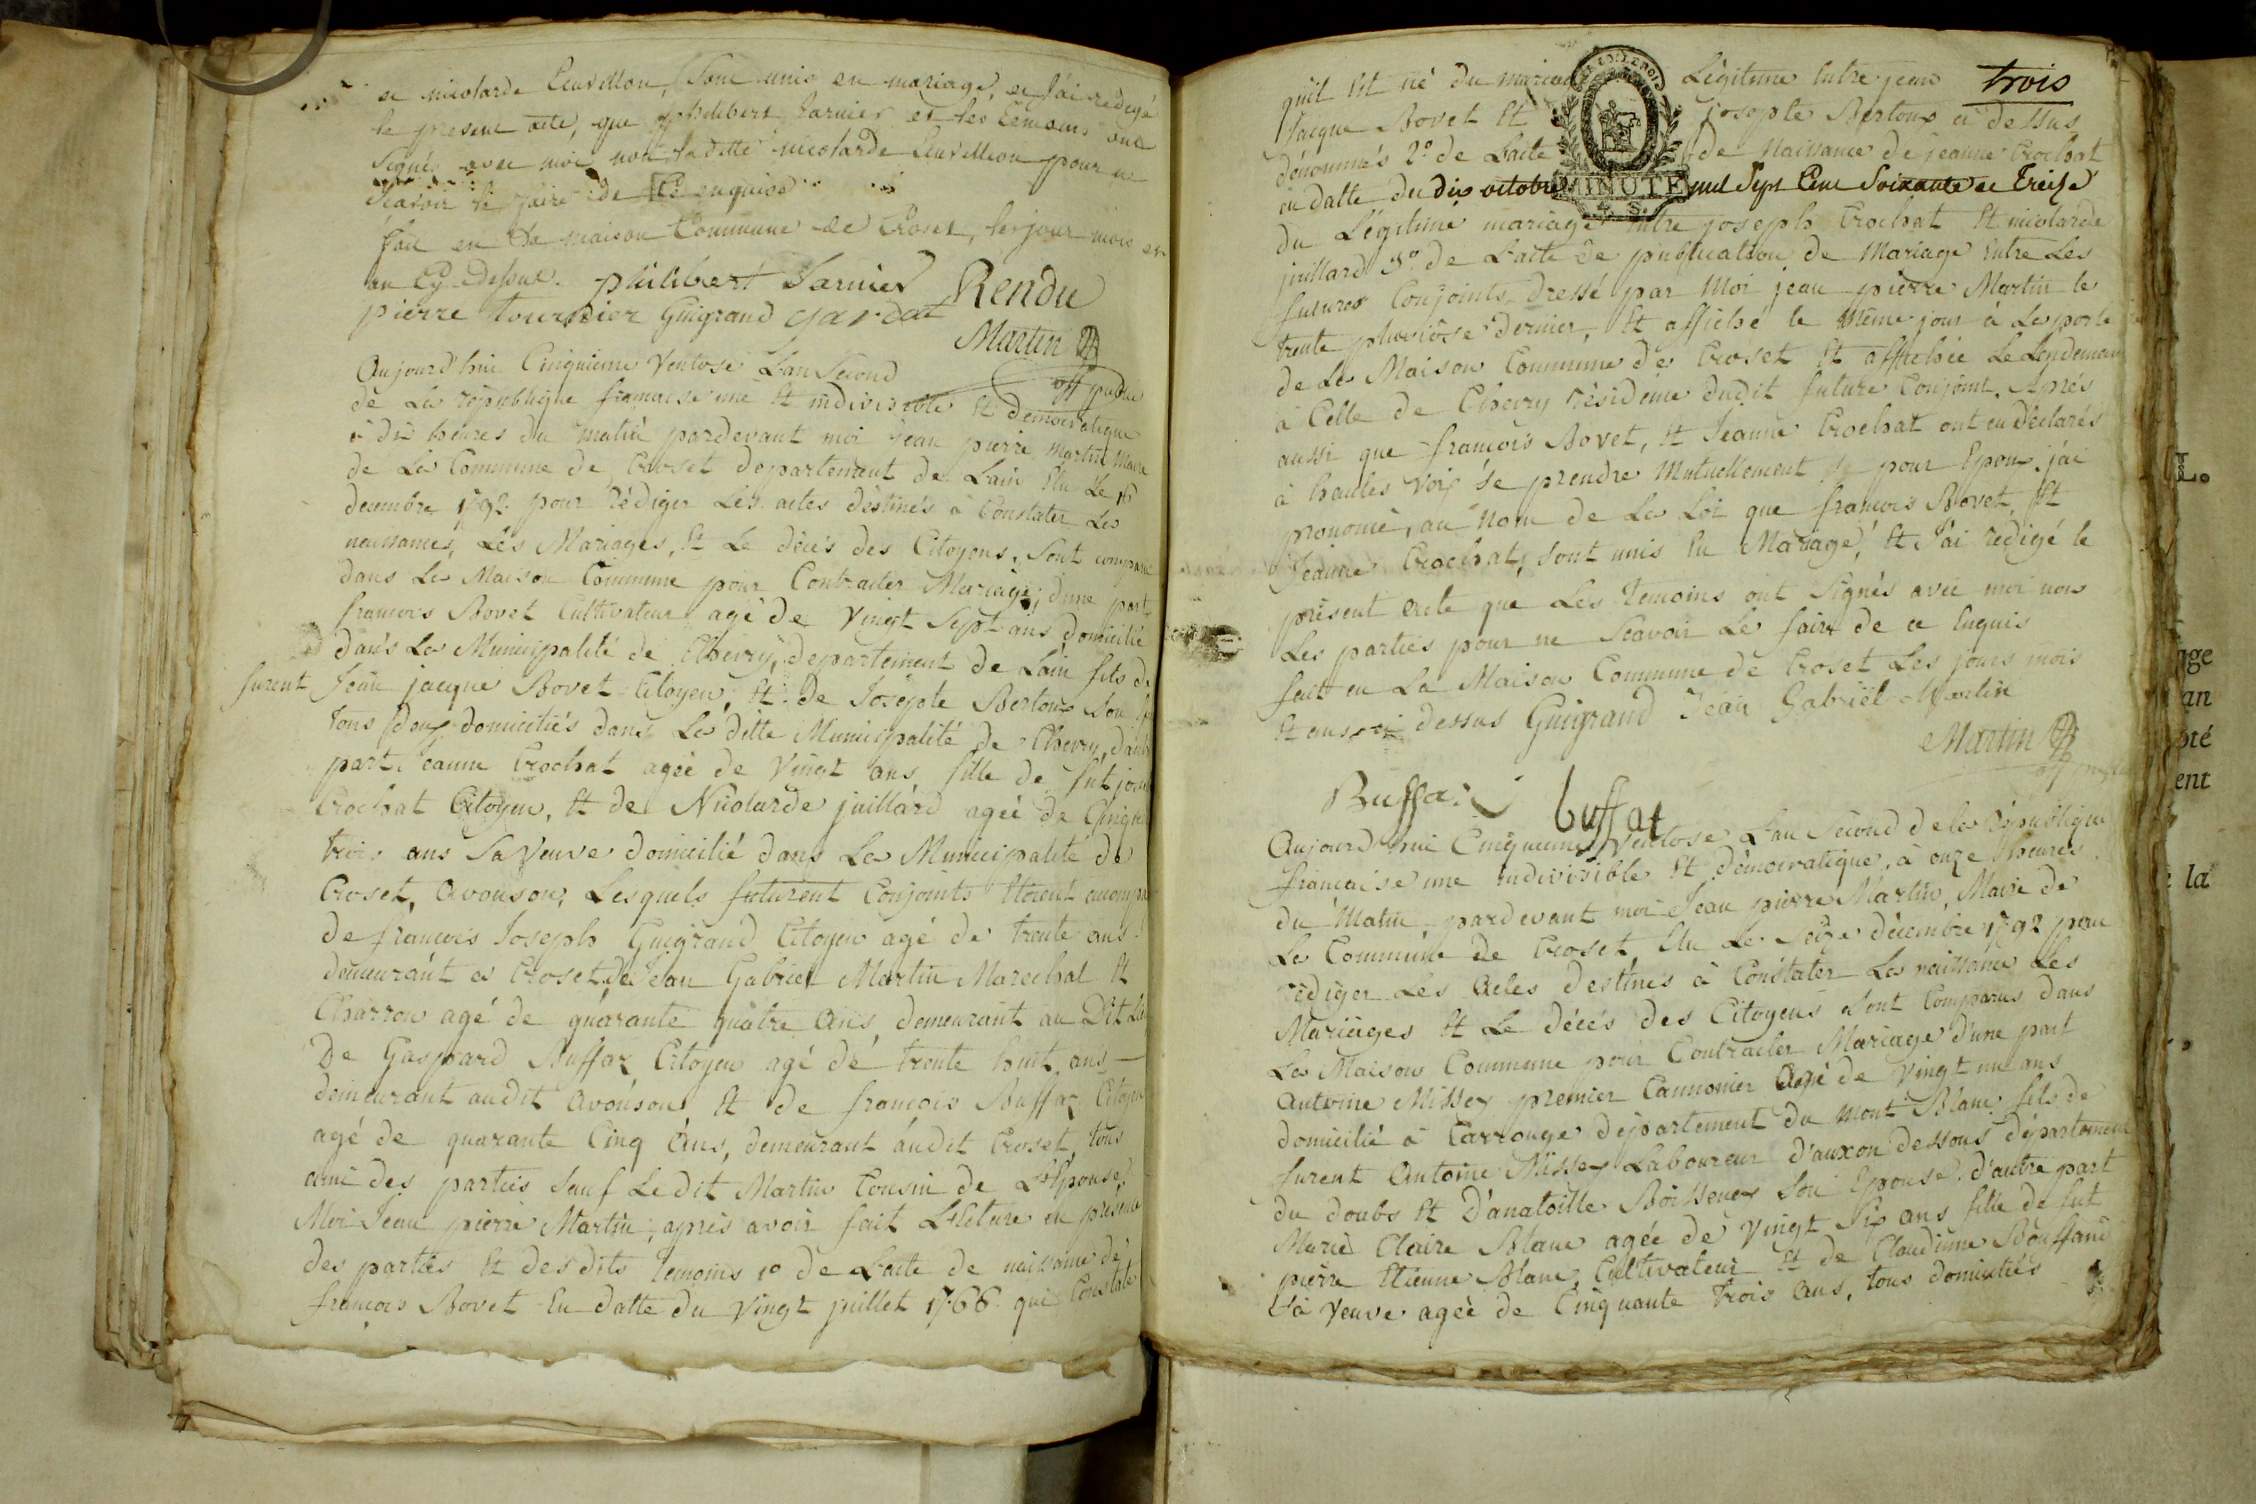 et nicolarde Leuvillon, Sont unis en mariage, et J'ai redigé
le present acte, que philibert Tarnier et les temoins ont
Signé avec moi non laditte nicolarde Leuvillion pour ne
Scavoir le faire de ce enquise
fait en la maison Commune de Croset, les jour mois et
an Cy-Dessus. philibert Tarnier Rendu
pierre tournier Guigrand
Martin
off public
Aujourd'hui Cinquieme Ventose L'an Second
de La république francaise une Et indivisible Et democratique
à dix heures du matin pardevant moi Jean pierre Martin Maire
de La Commune de Croset departement de Lain Elu Le 16
decembre 1792 pour rédiger Les actes destinés à Constater Les
naissances, Les Mariages, Et Le décés des Citoyens, Sont comparus
dans La Maison Commune pour Contracter Mariage; d'une part
francois Bovet Cultivateur agé de Vingt Sept ans domicilié
dans La Municipalité de Chevry, departement de Lain fils de
furent Jean jacque Bovet Citoyen, Et de Josepte Bertoux Son
tous deux domiciliés dans La ditte Municipalité de Chevry, d'autre
part Jeanne Crochat agée de Vingt ans fille de fut
Crochat Citoyen, Et de Nicolarde juillard agée de Cinquante
trois ans Sa Veuve domicilié dans La Municipalité de
Croset, avouson, Lesquels futurent Conjoints Etoient
de francois Joseph Guigrand Citoyen agé de trente ans
demeurant a Croset, de Jean Gabriel Martin Marechal Et
Charron agé de quarante quatre ans demeurant au Dit Lieu
De Gaspard Buffaz Citoyen agé de trente huit ans
demeurant audit avouson Et de francois Buffaz Citoyen
agé de quarante Cinq ans, demeurant audit Croset, tous
ami des parties Sauf Le dit Martin Cousin de L'Epouse,
Moi Jean pierre Martin, aprés avoir fait Lecture en présence
des parties Et des dits temoins 1º de L'acte de naissance de
francois Bovet En datte du Vingt juillet 1766 qui Constate
trois
quil Est né du mariage Légitime Entre jean
Jacque Bovet Et Josepte Bertoux ci dessus
dénommés 2º de L'acte de Naissance de jeanne Crochat
en datte du dix octobre mil Sept Cent Soixante et treize
MINUTE
du Légitime mariage Entre joseph Crochat Et nicolarde
juillard 3º de L'acte de publication de Mariage Entre Les
futures Conjoints Dressé par Moi jean pierre Martin le
trente pluviôse dernier, Et affiché le Même jour à La porte
de La Maison Commune de Croset Et affichée Le Lendemain
à Celle de Chevry résidence dudit future Conjoint. Après
aussi que francois Bovet, Et Jeanne Crochat ont eu déclarés
à hautes Voix Se prendre Mutuellement pour Epoux j'ai
prononcé, au Nom de La Loi que francois Bovet, Et
Jeanne Crochat, Sont unis En Mariage, Et J'ai rédigé le
présent acte que Les Temoins ont Signés avec moi non
Les parties pour ne Scavoir Le faire de ce Enquis
fait en La Maison Commune de Croset Les jours mois
Et an ci dessus Guigrand Jean Gabriel Martin
Martin
Buffaz buffat
Aujourd'hui Cinquieme Ventose L'an Second de la République
francaise une indivisible Et démocratique, à onze heures
du Matin pardevant moi Jean pierre Martin, Maire de
La Commune de Croset Elu Le Seize décembre 1792 pour
rédiger Les Actes destinés à Constater La naissance Les
Mariages Et Le décés des Citoyens Sont Comparus dans
La Maison Commune pour Contracter Mariage d'une part
antoine Missey premier Cannonier agé de Vingt un ans
domicilié à Carrouge département du Mont Blanc fils de
furent Antoine Missey Laboureur d'auxon dessous département
du doubs Et D'anatoille Son Epouse. d'autre part
Marie Claire Blanc agée de Vingt Six ans fille de fut
pierre Etienne Blanc Cultivateur Et de Claudine Bouffand
Sa Veuve agée de Cinquante trois ans, tous domiciliés
L.
age
an
pté
ent
la